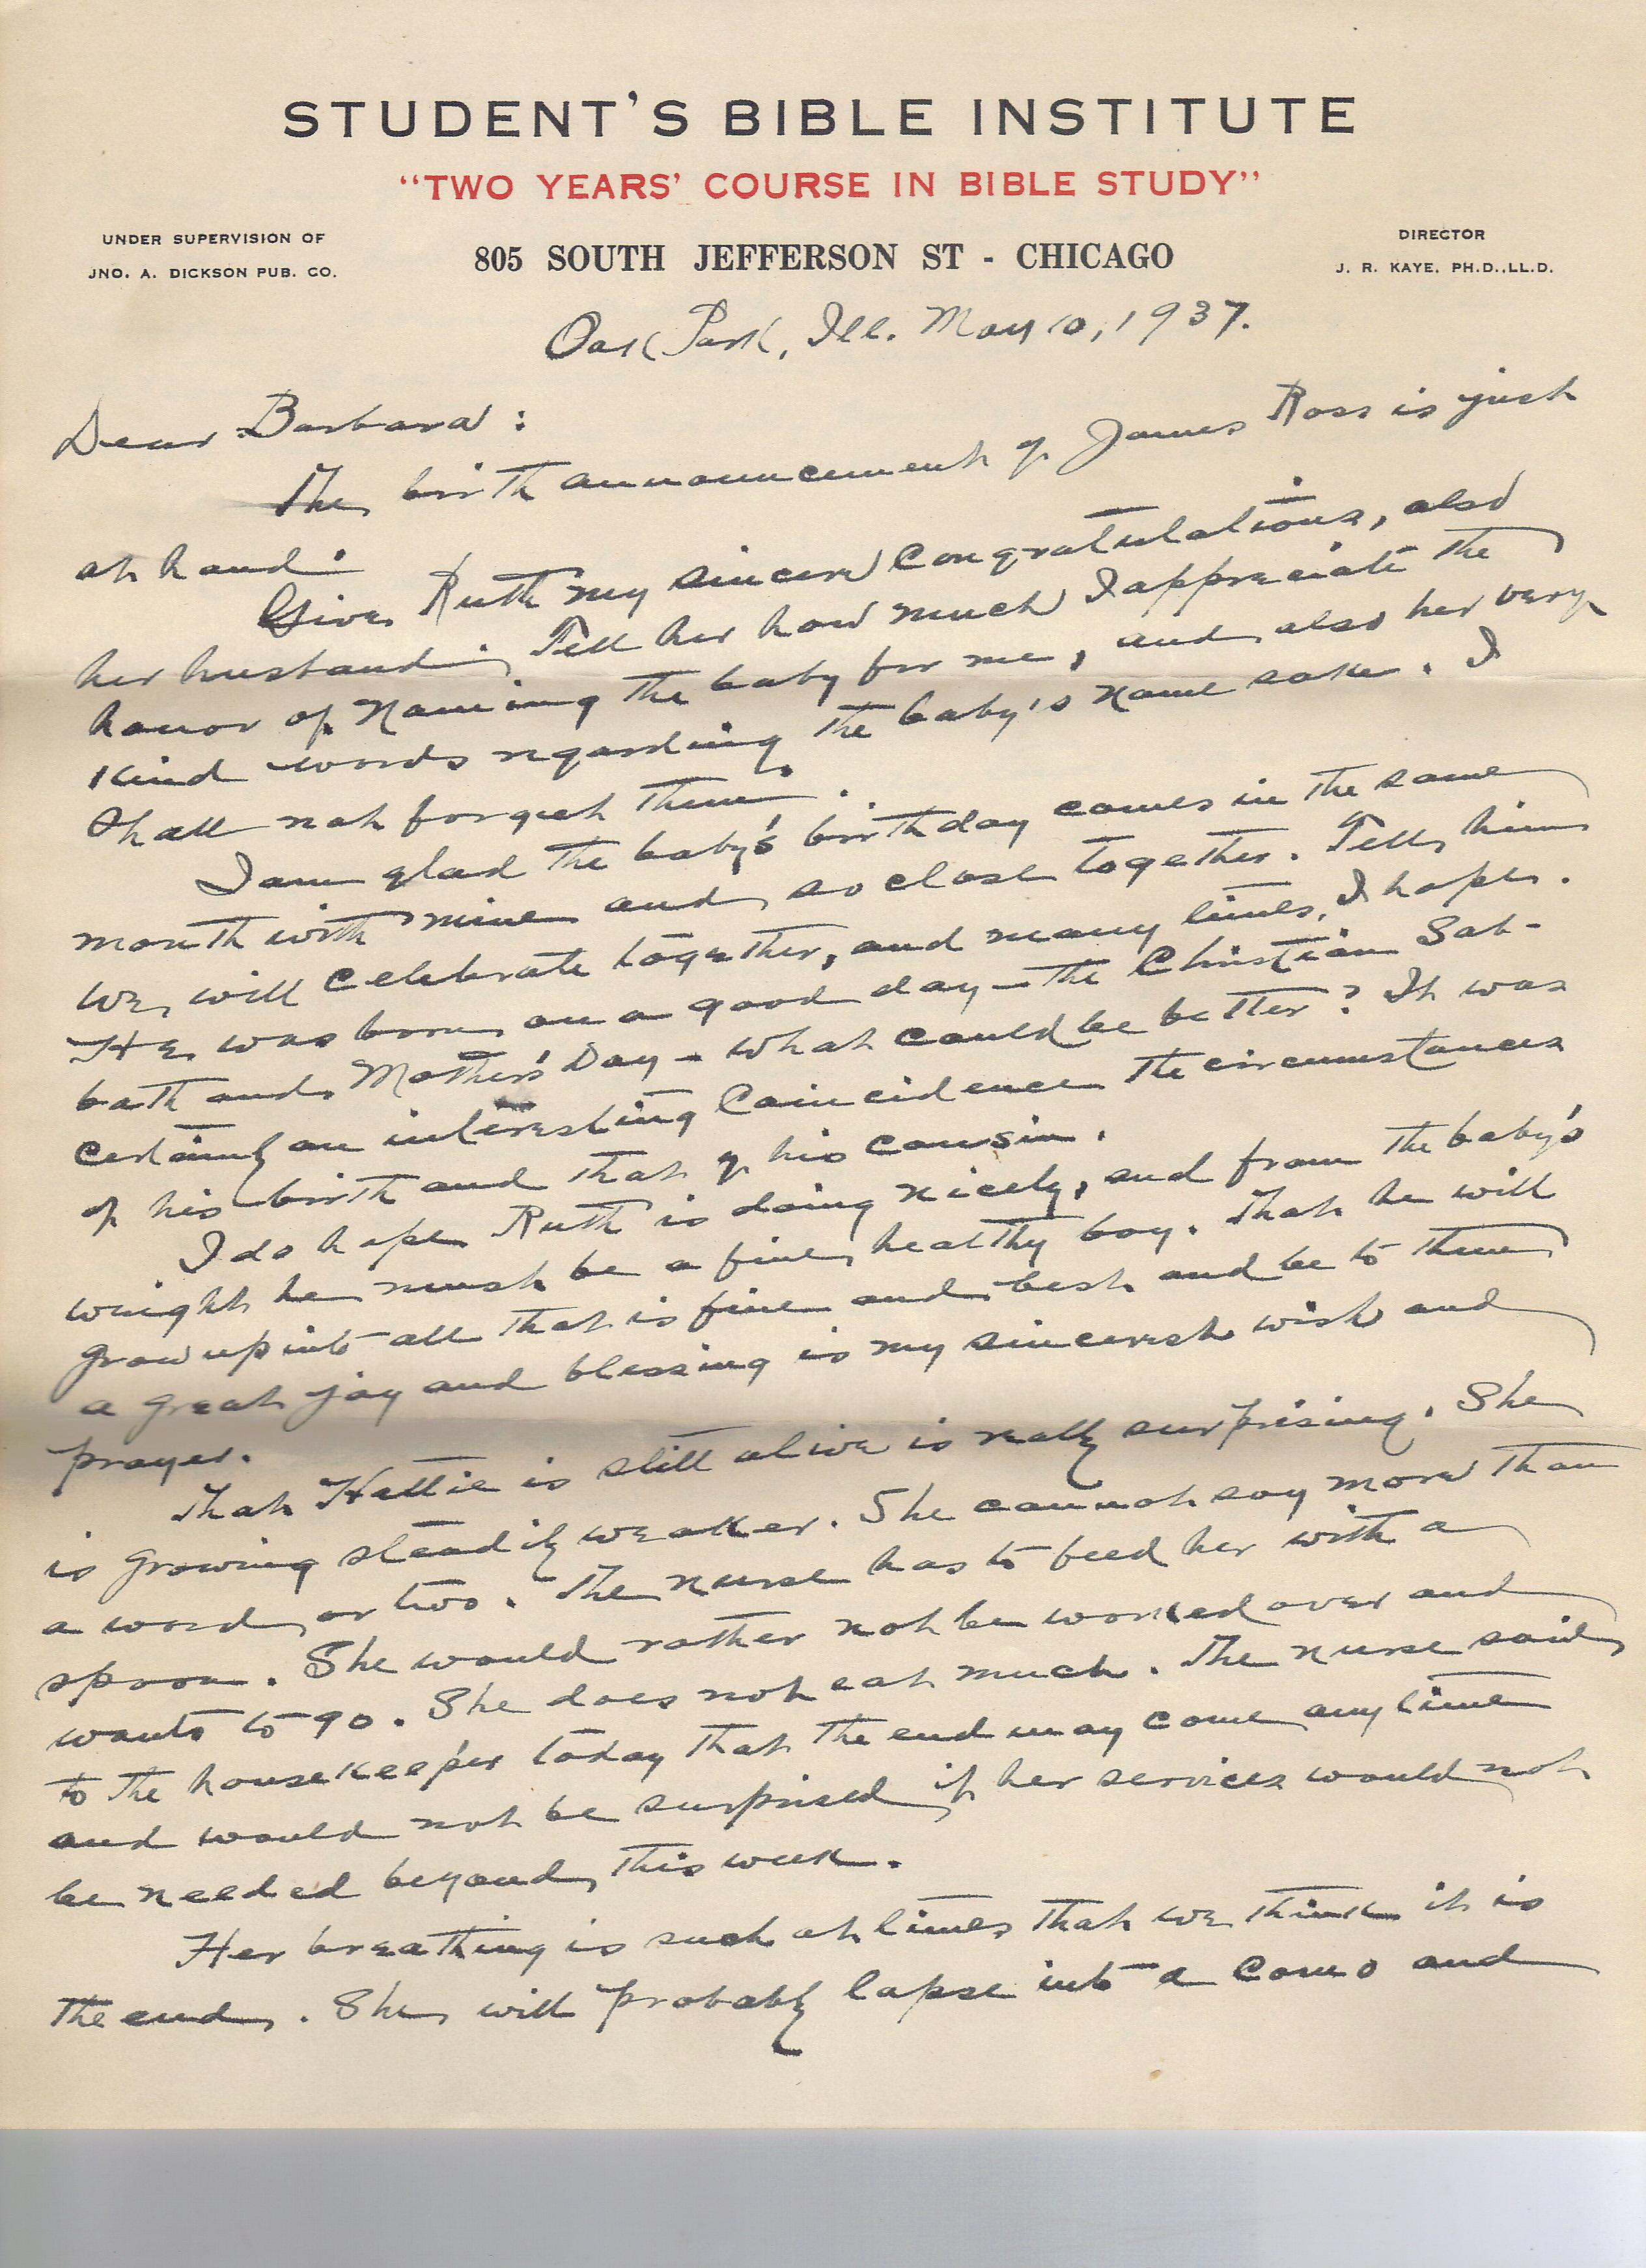 STUDENT'S BIBLE INSTITUTE
"TWO YEARS' COURSE IN BIBLE STUDY"
UNDER SUPERVISION OF
JNO. A. DICKSON PUB. CO.
805 SOUTH JEFFERSON ST - CHICAGO
DIRECTOR
J. R. KAYE, PH.D.,LL.D.
Oak Park, Ill. May 10, 1937.
Dear Barbara:
The birth announcement of James Ross is just
at hand.
Give Ruth my sincere congratulations, also
her husband. Tell her how much I appreciate the
honor of naming the baby for me, and also her very
kind words regarding the baby's name sake. I
shall not forget them.
I am glad the baby's birthday comes in the same
month with mine and so close together. Tell him
we will celebrate together, and many times, I hope.
He was born on a good day - the Christian Sab-
bath and Mother's Day - what could be better? It was
certainly an interesting coincidence the circumstances
of his birth and that of his cousin.
I do hope Ruth is doing nicely, and from the baby's
weight he must be a fine, healthy boy. That he will
grow up into all that is fine and best and be to them
a great joy and blessing is my sincerest wish and
prayer.
That Hattie is still alive is really surprising. She
is growing steadily weaker. She cannot say more than
a word or two. The nurse has to feed her with a
spoon. She would rather not be worked over and
wants to go. She does not eat much. The nurse said
to the housekeeper today that the end may come any time
and would not be surprised if her services would not
be needed beyond this week.
Her breathing is such at times that we think it is
the end. She will probably lapse into a coma and